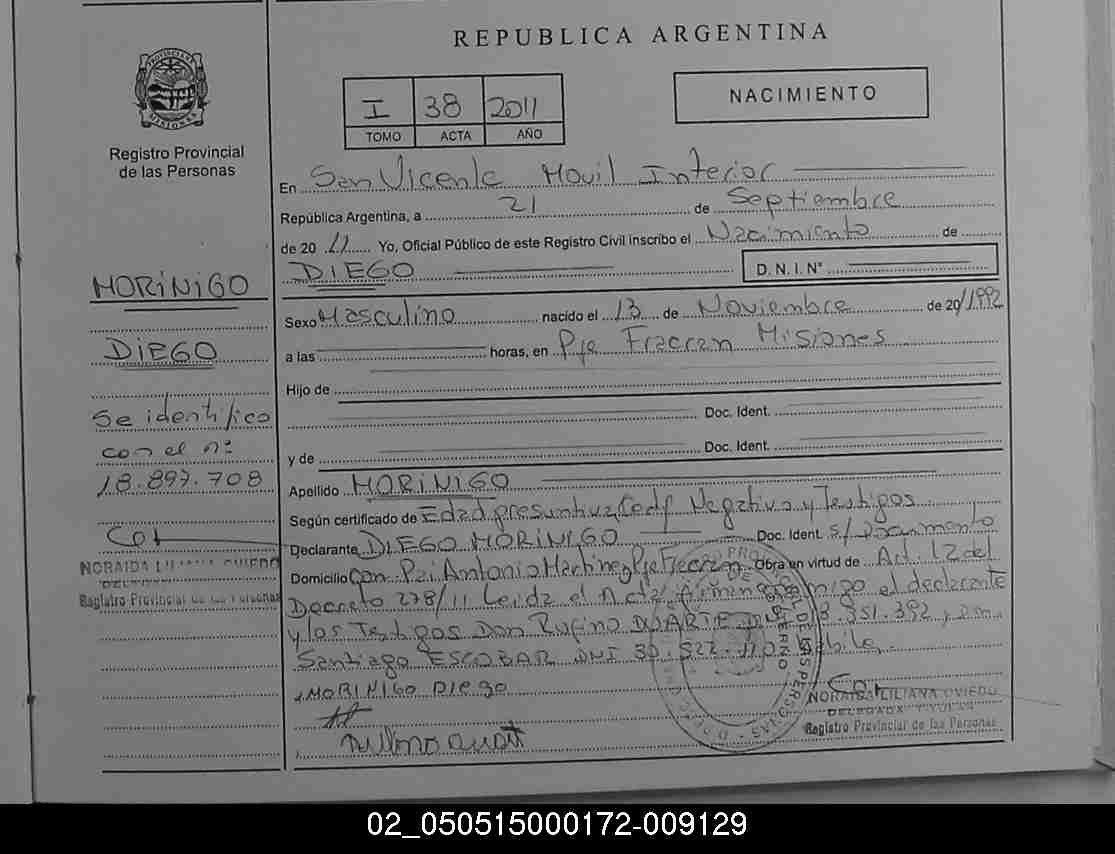 REPUBLICA ARGENTINA
PROVINCIA DE MISIONES
Registro Provincial
de las Personas
I 38 2011
TOMO ACTA AÑO
NACIMIENTO
En San Vicente Movil Interior
República Argentina, a 21 de Septiembre
de 20 11 Yo, Oficial Público de este Registro Civil inscribo el Nacimiento de
DIEGO D.N.I. N°
Sexo Masculino nacido el 13 de Noviembre de 20/1992
a las horas, en Pje Fracran Misiones
Hijo de
Doc. Ident.
y de Doc. Ident.
Apellido MORINIGO
Según certificado de Edad presuntiva, Certf Negativo y Testigos
Declarante DIEGO MORINIGO Doc. Ident. s/Documento
Domicilio Con. Pai Antonio Martinez Pje Fracran Obra en virtud de Art. 12 del
Decreto 278/11 Leida el Acta, firman conmigo el declarante
y los Testigos Don Rufino DUARTE .351.392, y
Santiago ESCOBAR DNI 30.522.
MORINIGO Diego
MORINIGO
DIEGO
Se identifico
con el n°
18.897.708
NORAIDA LILIANA OVIEDO
DELEGADA
Registro Provincial de las Personas
NORAIDA LILIANA OVIEDO
DELEGADA TITULAR
Registro Provincial de las Personas
02_050515000172-009129